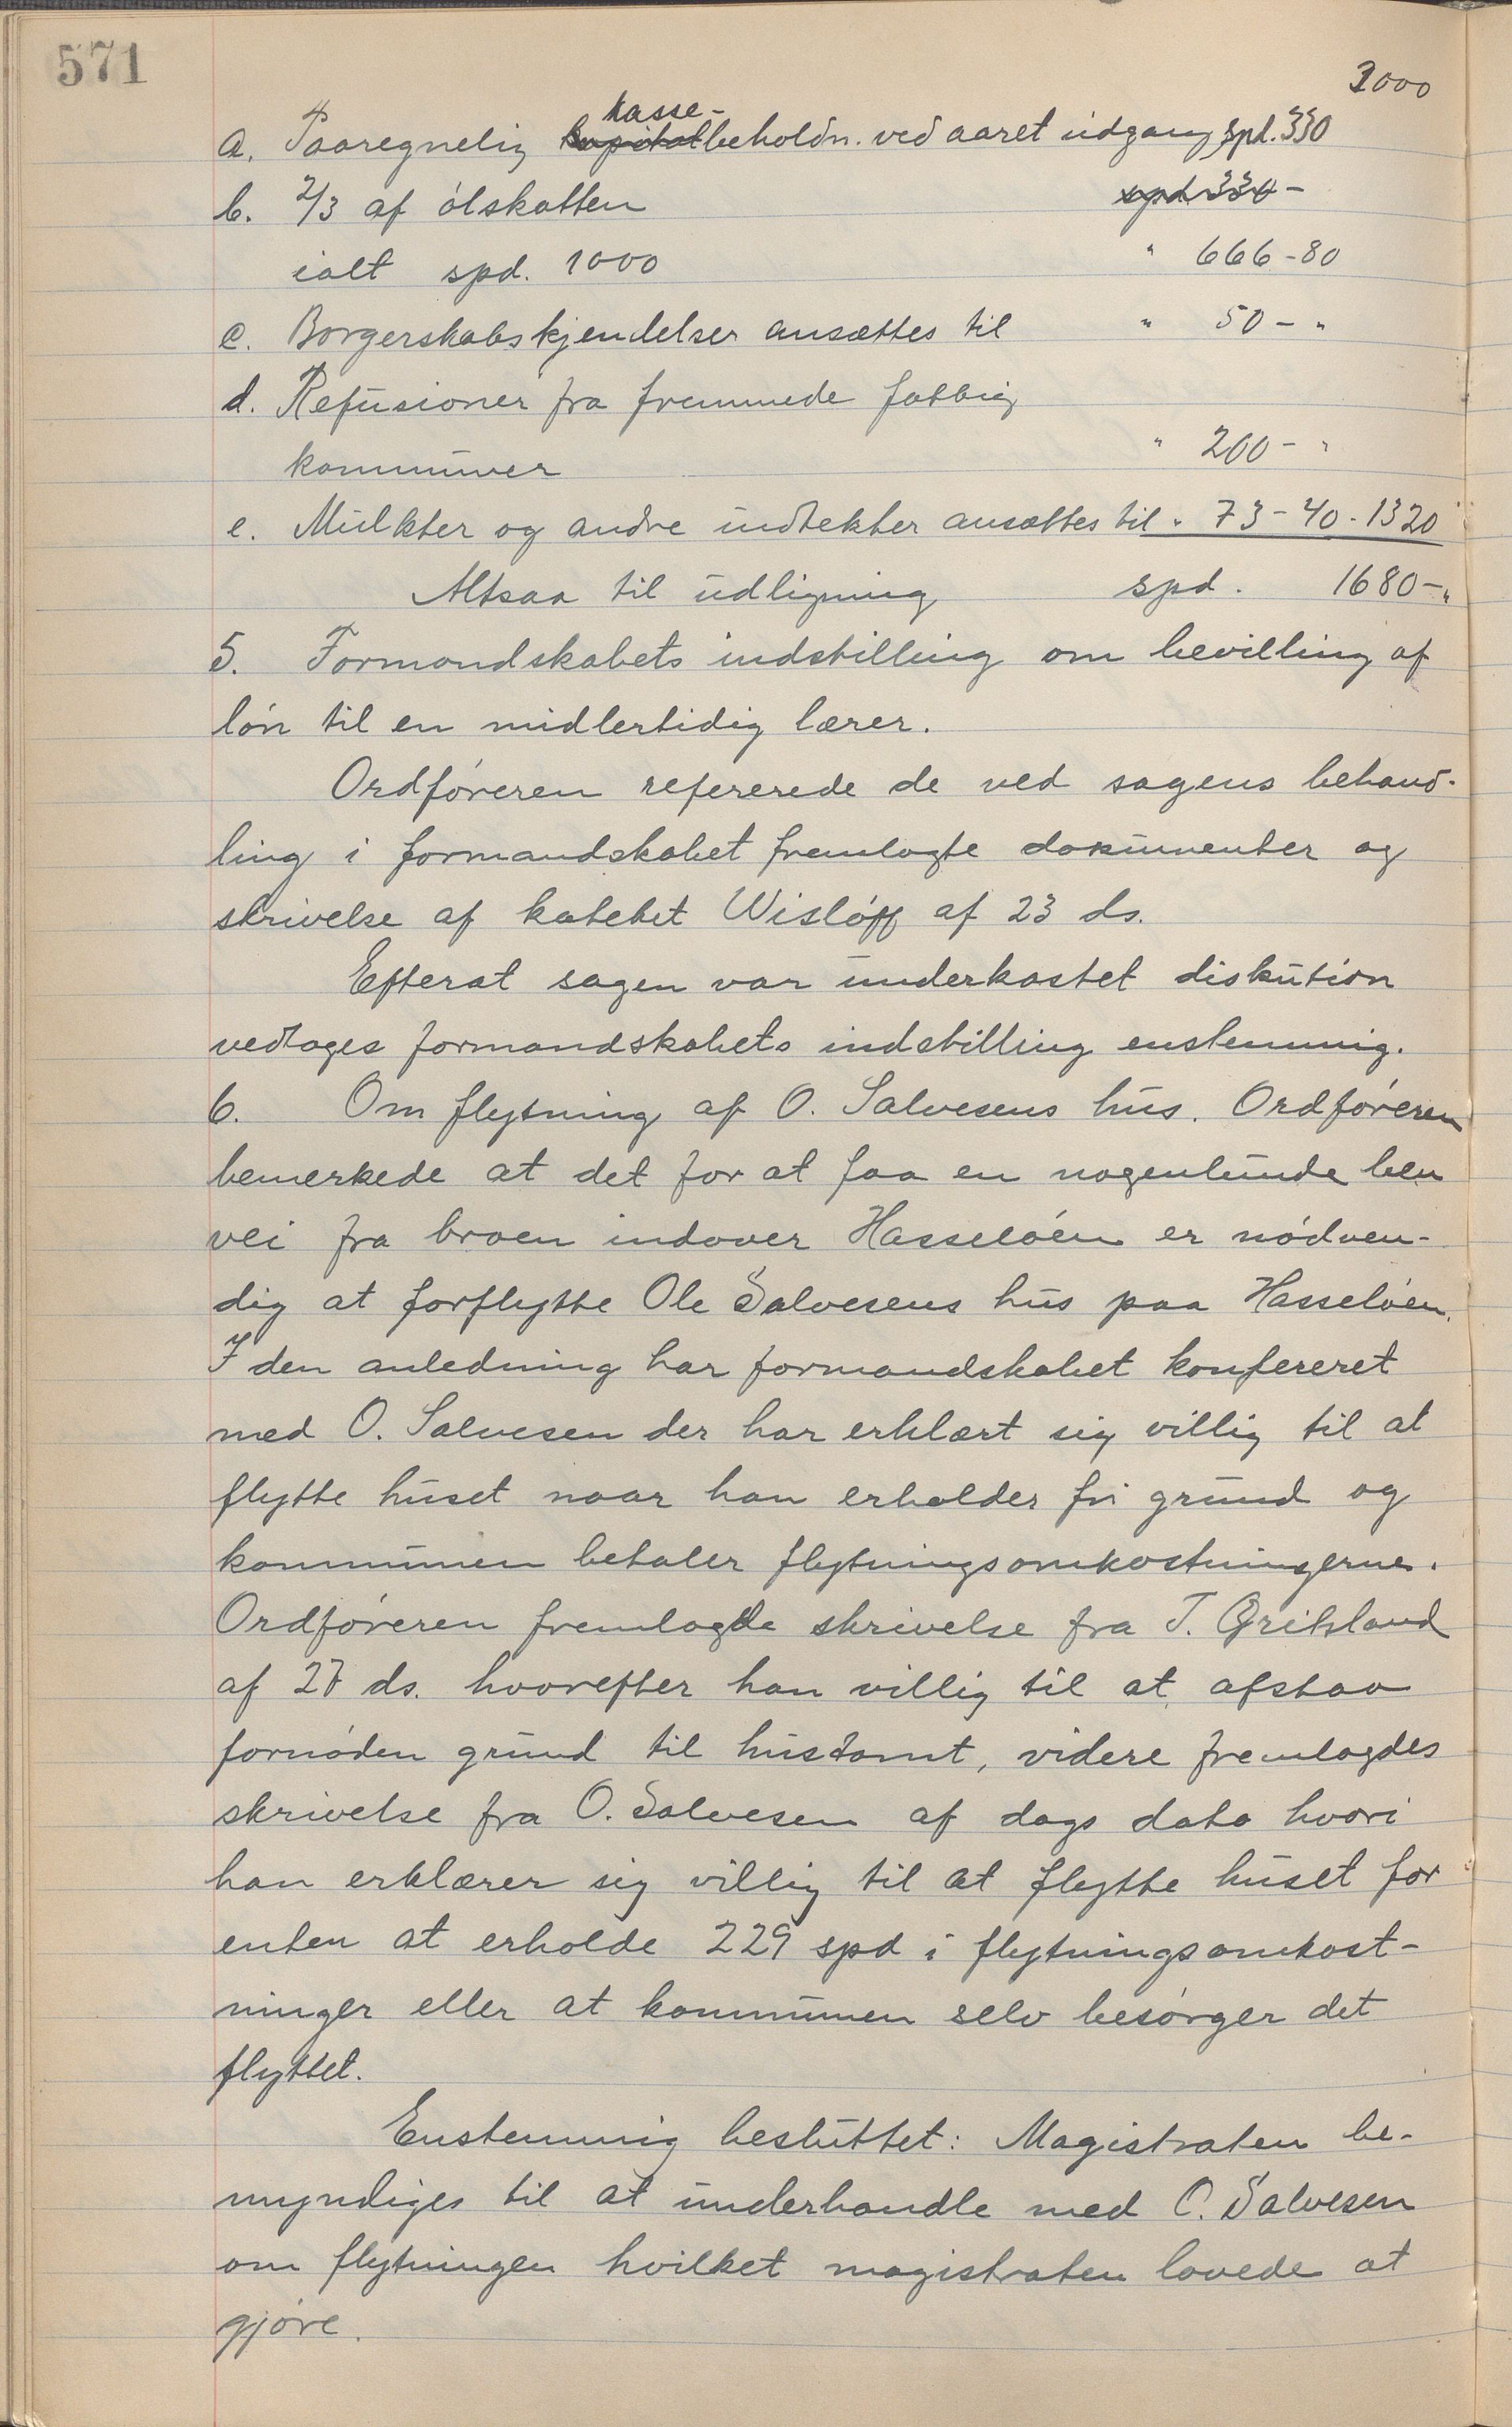 571
3000
a. Paaregnelig kasse-beholdn. ved aaret udgang spd. 330
b. 2/3 af ølskatten spd 330 -
ialt spd. 1000 " 666-80
c. Borgerskabskjendelser ansættes til " 50 - "
d. Refusioner fra fremmede fattig
kommuner " 200 - "
e. Mulkter og andre indtekter ansættes til " 73-40-1320
Altsaa til udligning spd. 1680-"
5. Formandskabets indstilling om bevilling af
løn til en midlertidig lærer.
Ordføreren refererede de ved sagens behand-
ling i formandskabet fremlagte dokumenter og
skrivelse af katetet Wisløff af 23 ds.
Efterat sagen var underkastet diskution
vedtoges formandskabets indstilling enstemmig.
6. Om flytning af O. Salvesens hus. Ordføreren
bemerkede at det for at faa en nogenlunde ben
vei fra broen indover Hasseløen er nødven-
dig at forflytte Ole Salvesens hus paa Hasseløen.
I den anledning har formandskabet konfereret
med O. Salvesen der har erklært sig villig til at
flytte huset naar han erholder fri grund og
kommunen betaler flytningsomkostningerne.
Ordføreren fremlagde skrivelse fra T. Gritsland
af 27 ds. hvorefter han villig til at afstaa
fornøden grund til hustomt, videre fremlagdes
skrivelse fra O. Salvesen af dags dato hvori
han erklærer sig villig til at flytte huset for
enten at erholde 229 spd i flytningsomkost-
ninger eller at kommunen selv besørger det
flyttet.
Enstemmig besluttet: Magistraten be-
myndiges til at underhandle med O. Salvesen
om flytningen hvilket magistraten lovede at
gjøre.